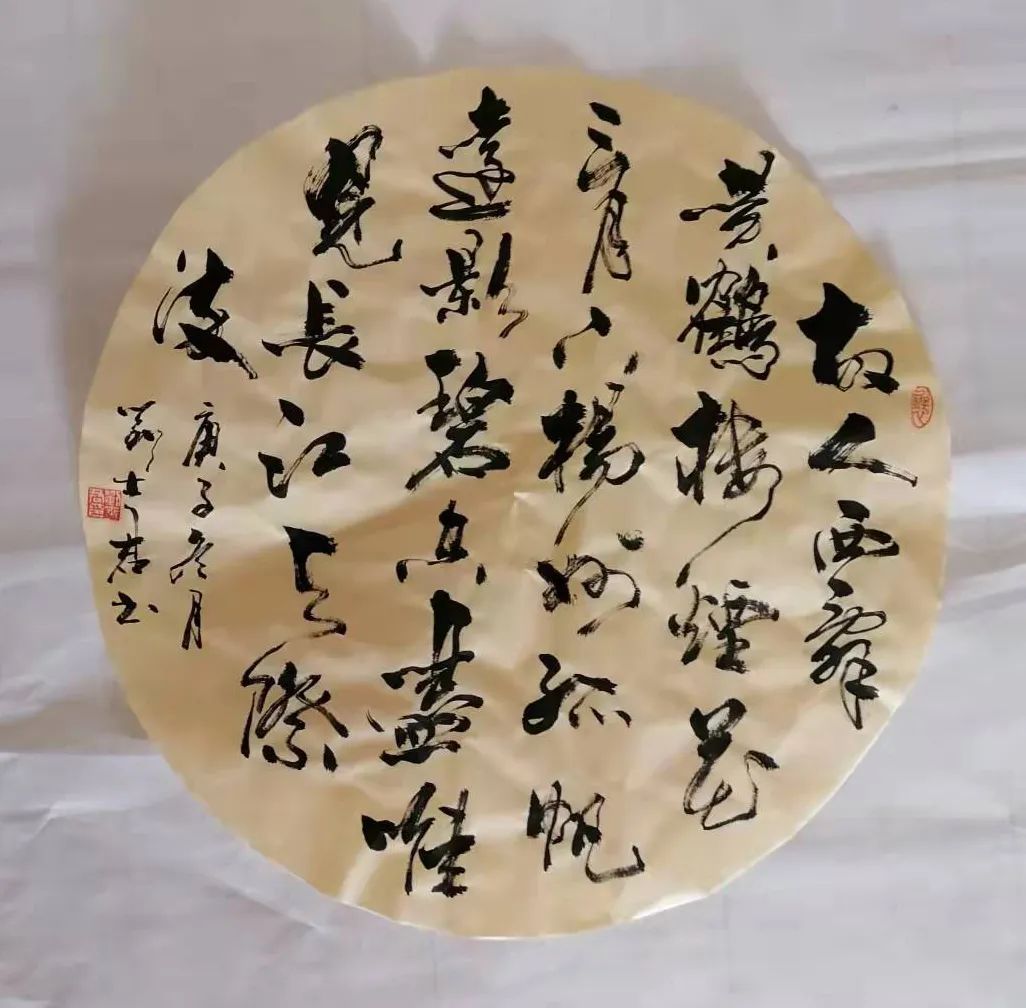 故人西辭
黄鶴樓煙花
三月下揚州孤帆
遠影碧空盡唯
見長江天際
流
庚子冬月
士书